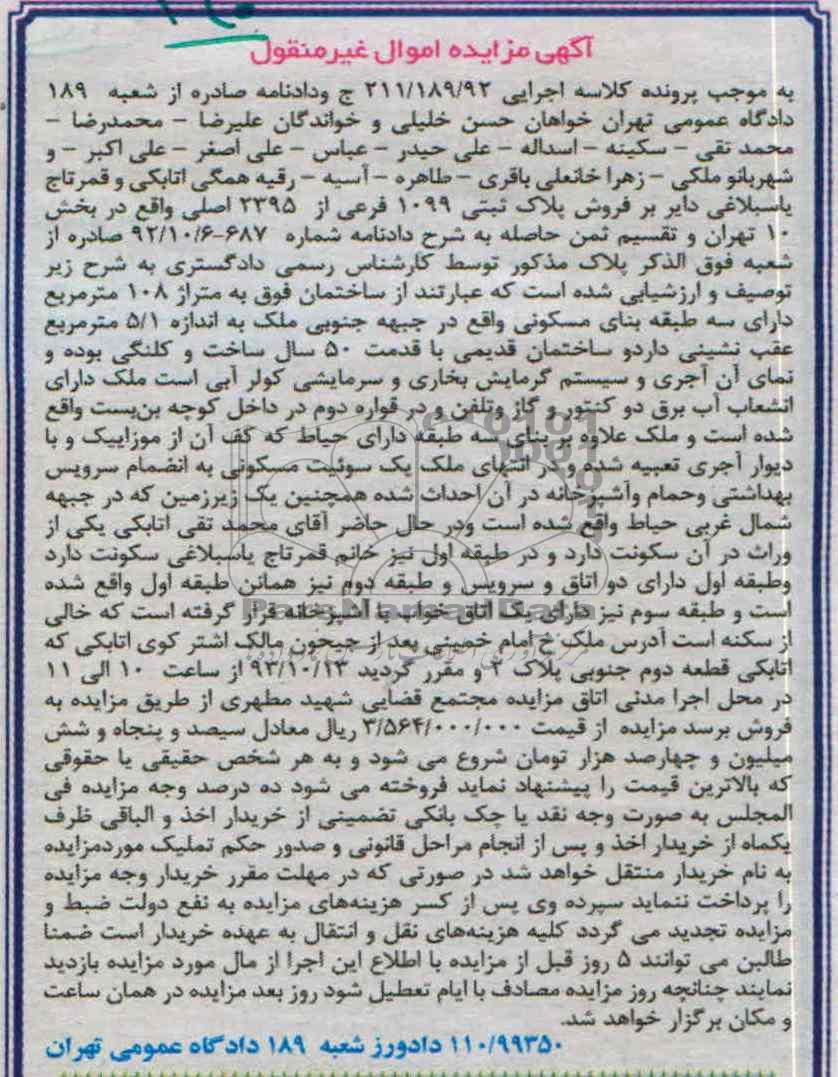 آگهی مزایده اموال غیرمنقول
به موجب پرونده کلاسه اجرایی ۲۱۱/۱۸۹/۹۲ ج ودادنامه صادره از شعبه ۱۸۹
دادگاه عمومی تهران خواهان حسن خلیلی و خواندگان علیرضا – محمدرضا –
محمد تقی – سکینه – اسداله – علی حیدر – عباس – علی اصغر – علی اکبر – و
شهربانو ملکی – زهرا خانعلی باقری – طاهره – آسیه – رقیه همگی اتابکی و قمرتاج
یاسبلاغی دایر بر فروش پلاک ثبتی ۱۰۹۹ فرعی از ۲۳۹۵ اصلی واقع در بخش
۱۰ تهران و تقسیم ثمن حاصله به شرح دادنامه شماره ۶۸۷-۹۲/۱۰/۶ صادره از
شعبه فوق الذکر پلاک مذکور توسط کارشناس رسمی دادگستری به شرح زیر
توصیف و ارزشیابی شده است که عبارتند از ساختمان فوق به متراژ ۱۰۸ مترمربع
دارای سه طبقه بنای مسکونی واقع در جبهه جنوبی ملک به اندازه ۵/۱ مترمربع
عقب نشینی داردو ساختمان قدیمی با قدمت ۵۰ سال ساخت و کلنگی بوده و
نمای آن آجری و سیستم گرمایش بخاری و سرمایشی کولر آبی است ملک دارای
انشعاب آب برق دو کنتور و گاز وتلفن و در قواره دوم در داخل کوچه بن‌بست واقع
شده است و ملک علاوه بر بنای سه طبقه دارای حیاط که کف آن از موزاییک و با
دیوار آجری تعبیه شده و در انتهای ملک یک سوئیت مسکونی به انضمام سرویس
بهداشتی وحمام وآشپزخانه در آن احداث شده همچنین یک زیرزمین که در جبهه
شمال غربی حیاط واقع شده است ودر حال حاضر آقای محمد تقی اتابکی یکی از
وراث در آن سکونت دارد و در طبقه اول نیز خانم قمرتاج یاسبلاغی سکونت دارد
وطبقه اول دارای دو اتاق و سرویس و طبقه دوم نیز همانن طبقه اول واقع شده
است و طبقه سوم نیز دارای یک اتاق خواب با آشپزخانه قرار گرفته است که خالی
از سکنه است آدرس ملک خ امام خمینی بعد از جیحون مالک اشتر کوی اتابکی که
اتابکی قطعه دوم جنوبی پلاک ۲ و مقرر گردید ۹۳/۱۰/۱۳ از ساعت ۱۰ الی ۱۱
در محل اجرا مدنی اتاق مزایده مجتمع قضایی شهید مطهری از طریق مزایده به
فروش برسد مزایده از قیمت ۳/۵۶۴/۰۰۰/۰۰۰ ریال معادل سیصد و پنجاه و شش
میلیون و چهارصد هزار تومان شروع می شود و به هر شخص حقیقی یا حقوقی
که بالاترین قیمت را پیشنهاد نماید فروخته می شود ده درصد وجه مزایده فی
المجلس به صورت وجه نقد یا چک بانکی تضمینی از خریدار اخذ و الباقی ظرف
یکماه از خریدار اخذ و پس از انجام مراحل قانونی و صدور حکم تملیک موردمزایده
به نام خریدار منتقل خواهد شد در صورتی که در مهلت مقرر خریدار وجه مزایده
را پرداخت ننماید سپرده وی پس از کسر هزینه‌های مزایده به نفع دولت ضبط و
مزایده تجدید می گردد کلیه هزینه‌های نقل و انتقال به عهده خریدار است ضمنا
طالبن می توانند ۵ روز قبل از مزایده با اطلاع این اجرا از مال مورد مزایده بازدید
نمایند چنانچه روز مزایده مصادف با ایام تعطیل شود روز بعد مزایده در همان ساعت
و مکان برگزار خواهد شد.
۱۱۰/۹۹۳۵۰ دادورز شعبه ۱۸۹ دادگاه عمومی تهران